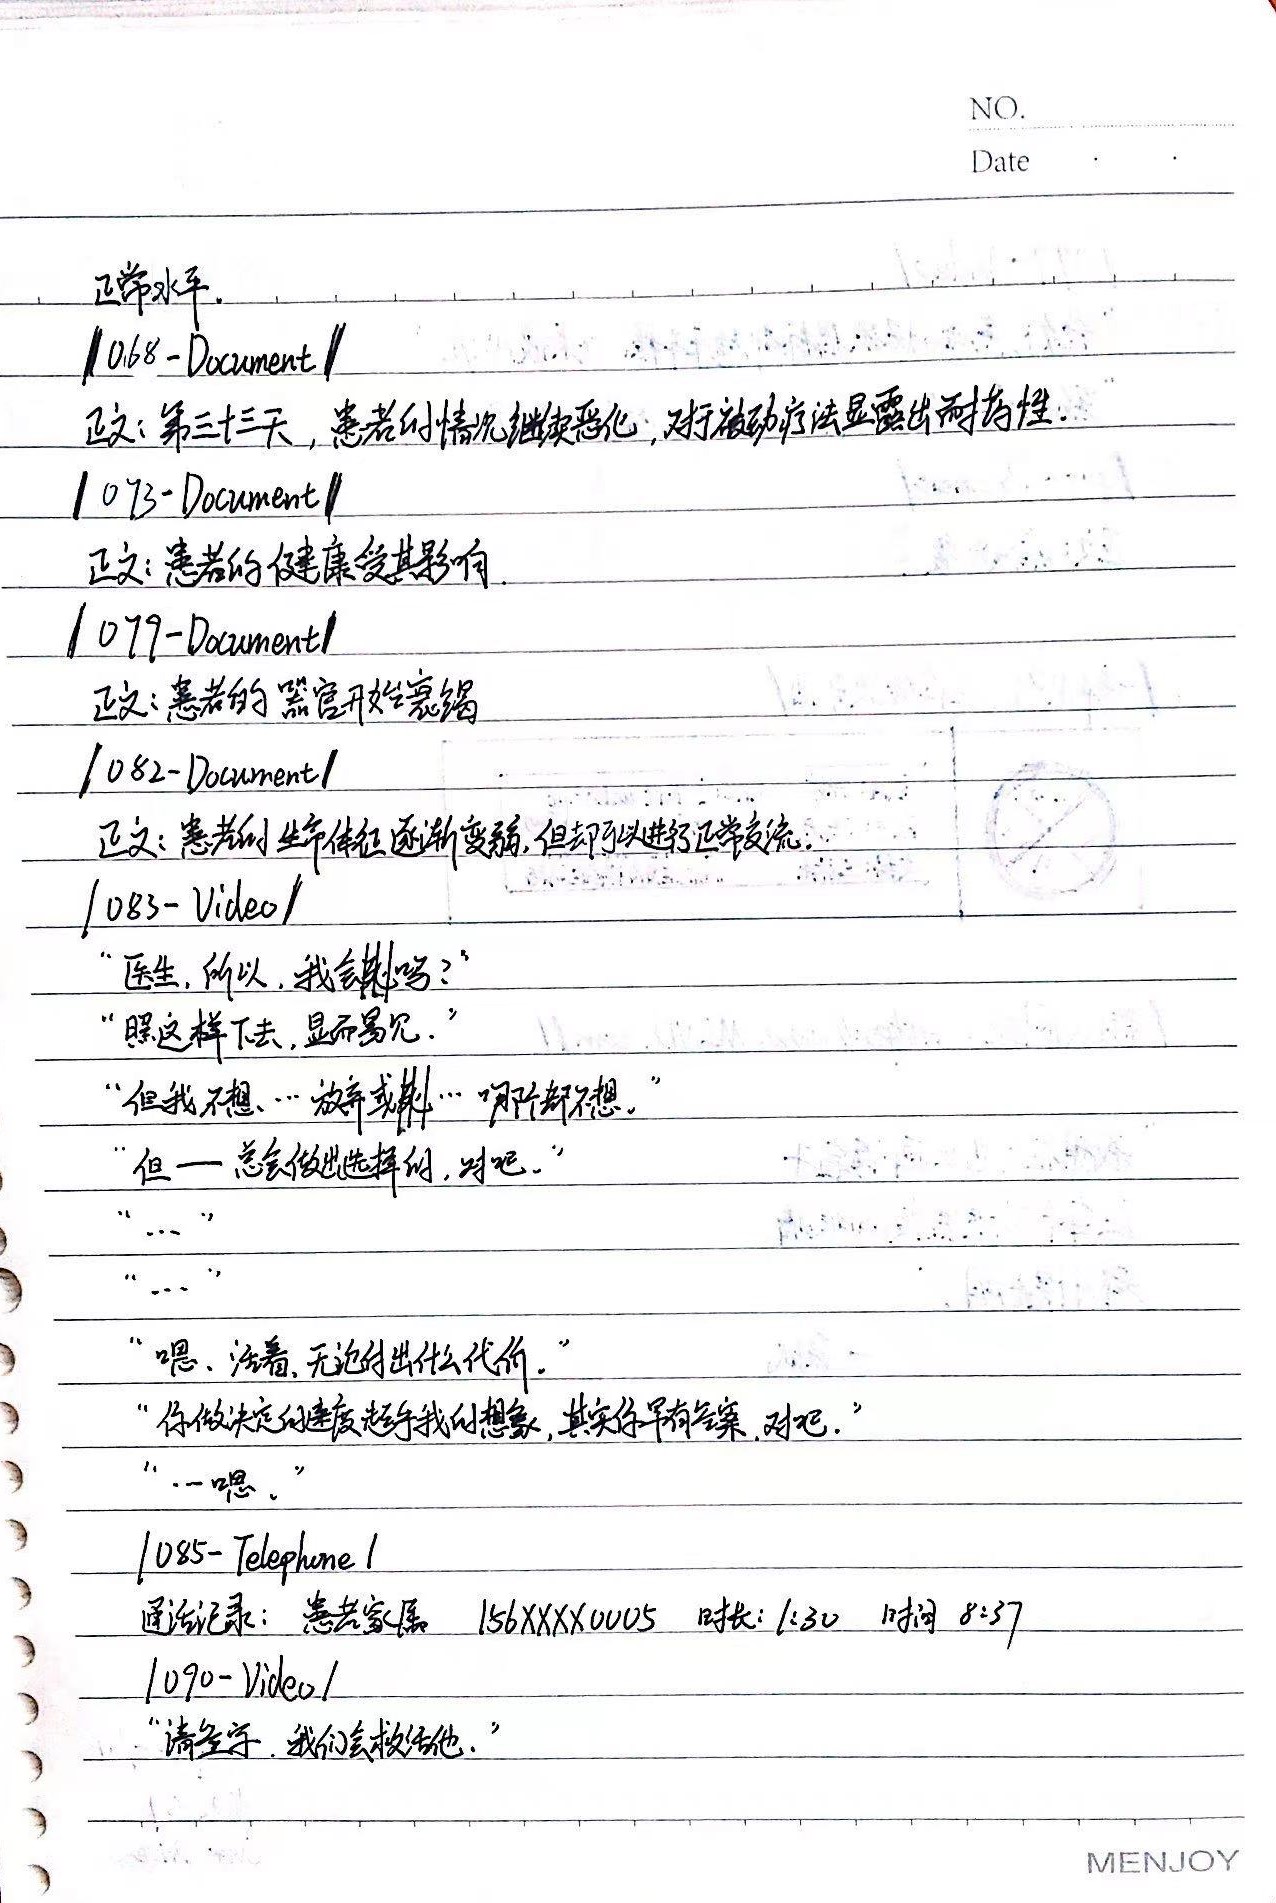 NO.
Date
正常水平.
/068-Document/
正文: 第三十三天, 患者的情况继续恶化, 对于被动疗法显露出耐药性.
/073-Document/
正文: 患者的健康受其影响.
/079-Document/
正文: 患者的器官开始衰竭
/082-Document/
正文: 患者的生命体征逐渐变弱, 但却可以进行正常交流.
/083-Video/
“医生, 所以, 我会 吗?”
“照这样下去, 显而易见.”
“但我不想、… 放弃或 … 哪个都不想.”
“但——总会做出选择的, 对吧.”
“…”
“…”
“嗯、活着, 无论付出什么代价.”
“你做决定的速度超乎我的想象, 其实你早有答案, 对吧.”
“…嗯.”
/085-Telephone/
通话记录: 患者家属 156XXXX0005 时长: 1:30 时间 8:37
/090-Video/
“请签字. 我们会救活他.”
MENJOY